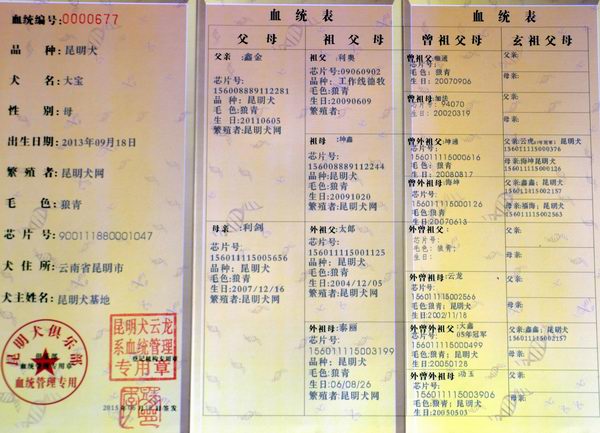 血统编号:0000677
品 种: 昆明犬
犬 名: 大宝
性 别: 母
出生日期: 2013年09月18日
繁 殖者: 昆明犬网
毛 色: 狼青
芯 片 号: 900111880001047
犬 住 所: 云南省昆明市
犬主姓名: 昆明犬基地
昆明犬俱乐部
血统管理专用章
血统管理专用
昆明犬云龙
系血统管理
专用章
登记机构专用章
血 统 表
父 母
祖 父 母
父亲:鑫金
芯片号:
156008889112281
品 种: 昆明犬
毛 色:狼青
生 日:20110605
繁殖者:昆明犬网
母亲:利剑
芯片号:
156011115005656
品种: 昆明犬
毛色:狼青
生日:2007/12/16
繁殖者:昆明犬网
祖父:利奥
芯片号:09060902
品种:工作线德牧
毛色:狼青
生日:20090609
繁殖者:
祖母:坤鑫
芯片号:
156008889112244
品种:昆明犬
毛色:狼青
生日:20091020
繁殖者:昆明犬网
外祖父:太郎
芯片号:
156011115001125
品种:昆明犬
毛色:狼青
生日:2004/12/05
繁殖者:昆明犬网
外祖母:泰丽
芯片号:
156011115003199
品种:昆明犬
毛色:狼青
生日:06/08/26
繁殖者:昆明犬网
血 统 表
曾祖父母
玄祖父母
曾祖父:
芯片号:
毛色: 狼青
生日: 20070906
曾祖母:
芯片号: 94070
毛色: 狼青
生日: 20020319
曾外祖父:坤通
芯片号:
156011115000616
毛色: 狼青
生日: 20080817
曾外祖母:海坤
芯片号:
156011115000126
毛色:狼青
生日:20070613
外曾祖父:
芯片号:
毛色:狼青;
生日:
外曾祖母:云龙
芯片号:
156011115002566
毛色:狼青;
生日:2002/11/18
外曾外祖父:大鑫
芯片号: 05年冠军
156011115000499
毛色: 狼青;
生日:20050128
外曾外祖母:
芯片号:
156011115003906
毛色: 狼青;
生日:20050503
父亲:
母亲:
父亲:
母亲:
父亲:云虎 昆明犬
156011115000376
母亲:海坤昆明犬
156011115000126
父亲:鑫鑫; 昆明犬
156011115002157
母亲:福海; 昆明犬
156011115002563
父亲:
母亲:
父亲:
母亲:
父亲:鑫鑫; 昆明犬
156011115002157
母亲:
父亲:
母亲: